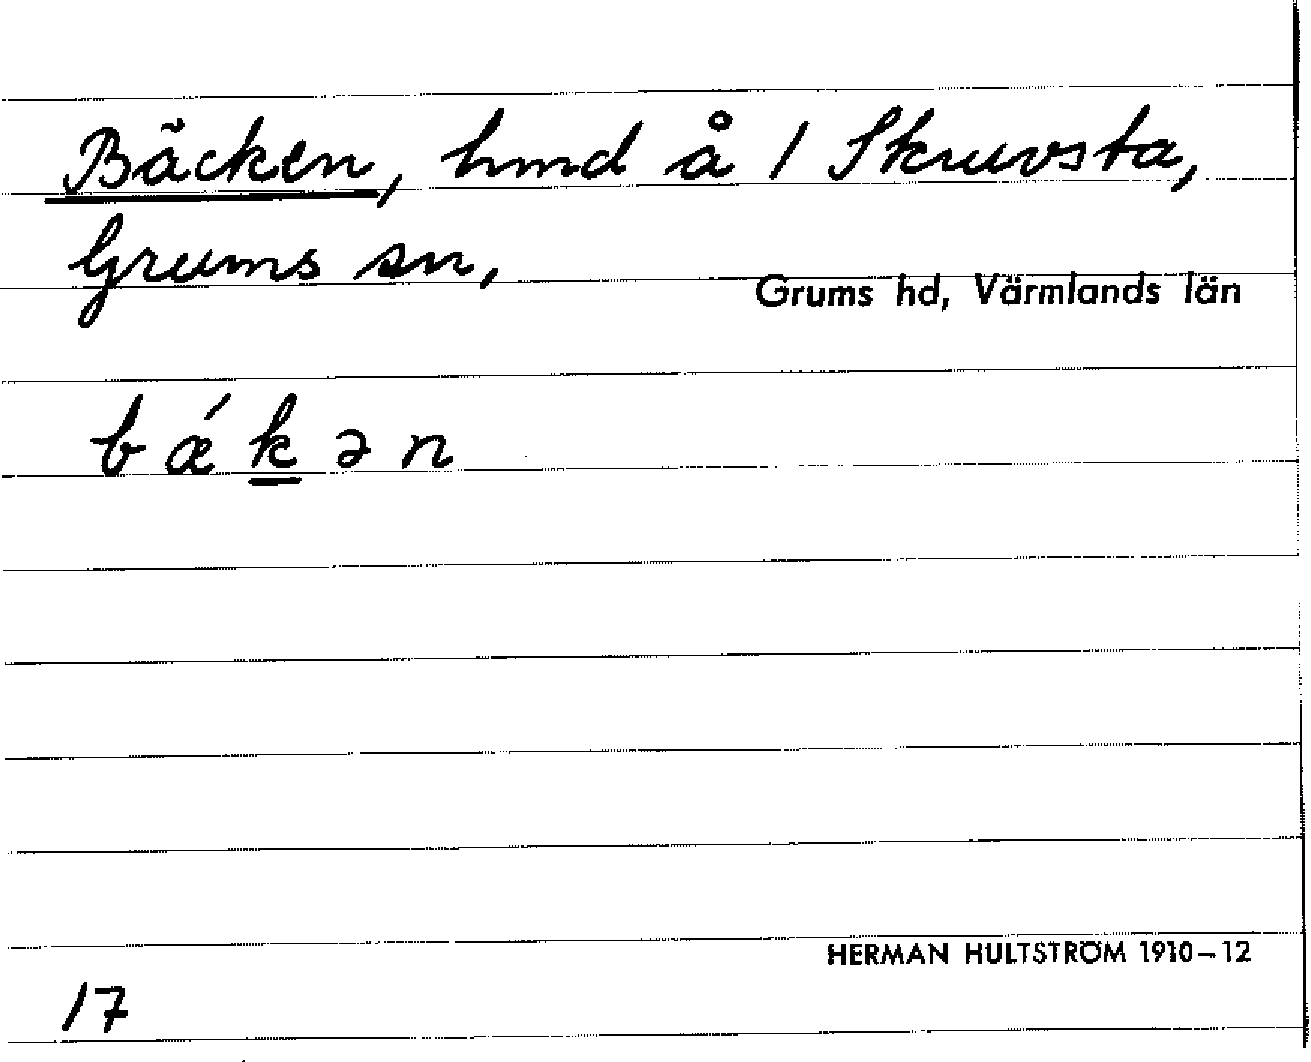 Bäcken, hmd å 1 Skruvsta,
Grums sn,
Grums hd, Värmlands län
b ǽ k̲ ə n
HERMAN HULTSTRÖM 1910–12
17